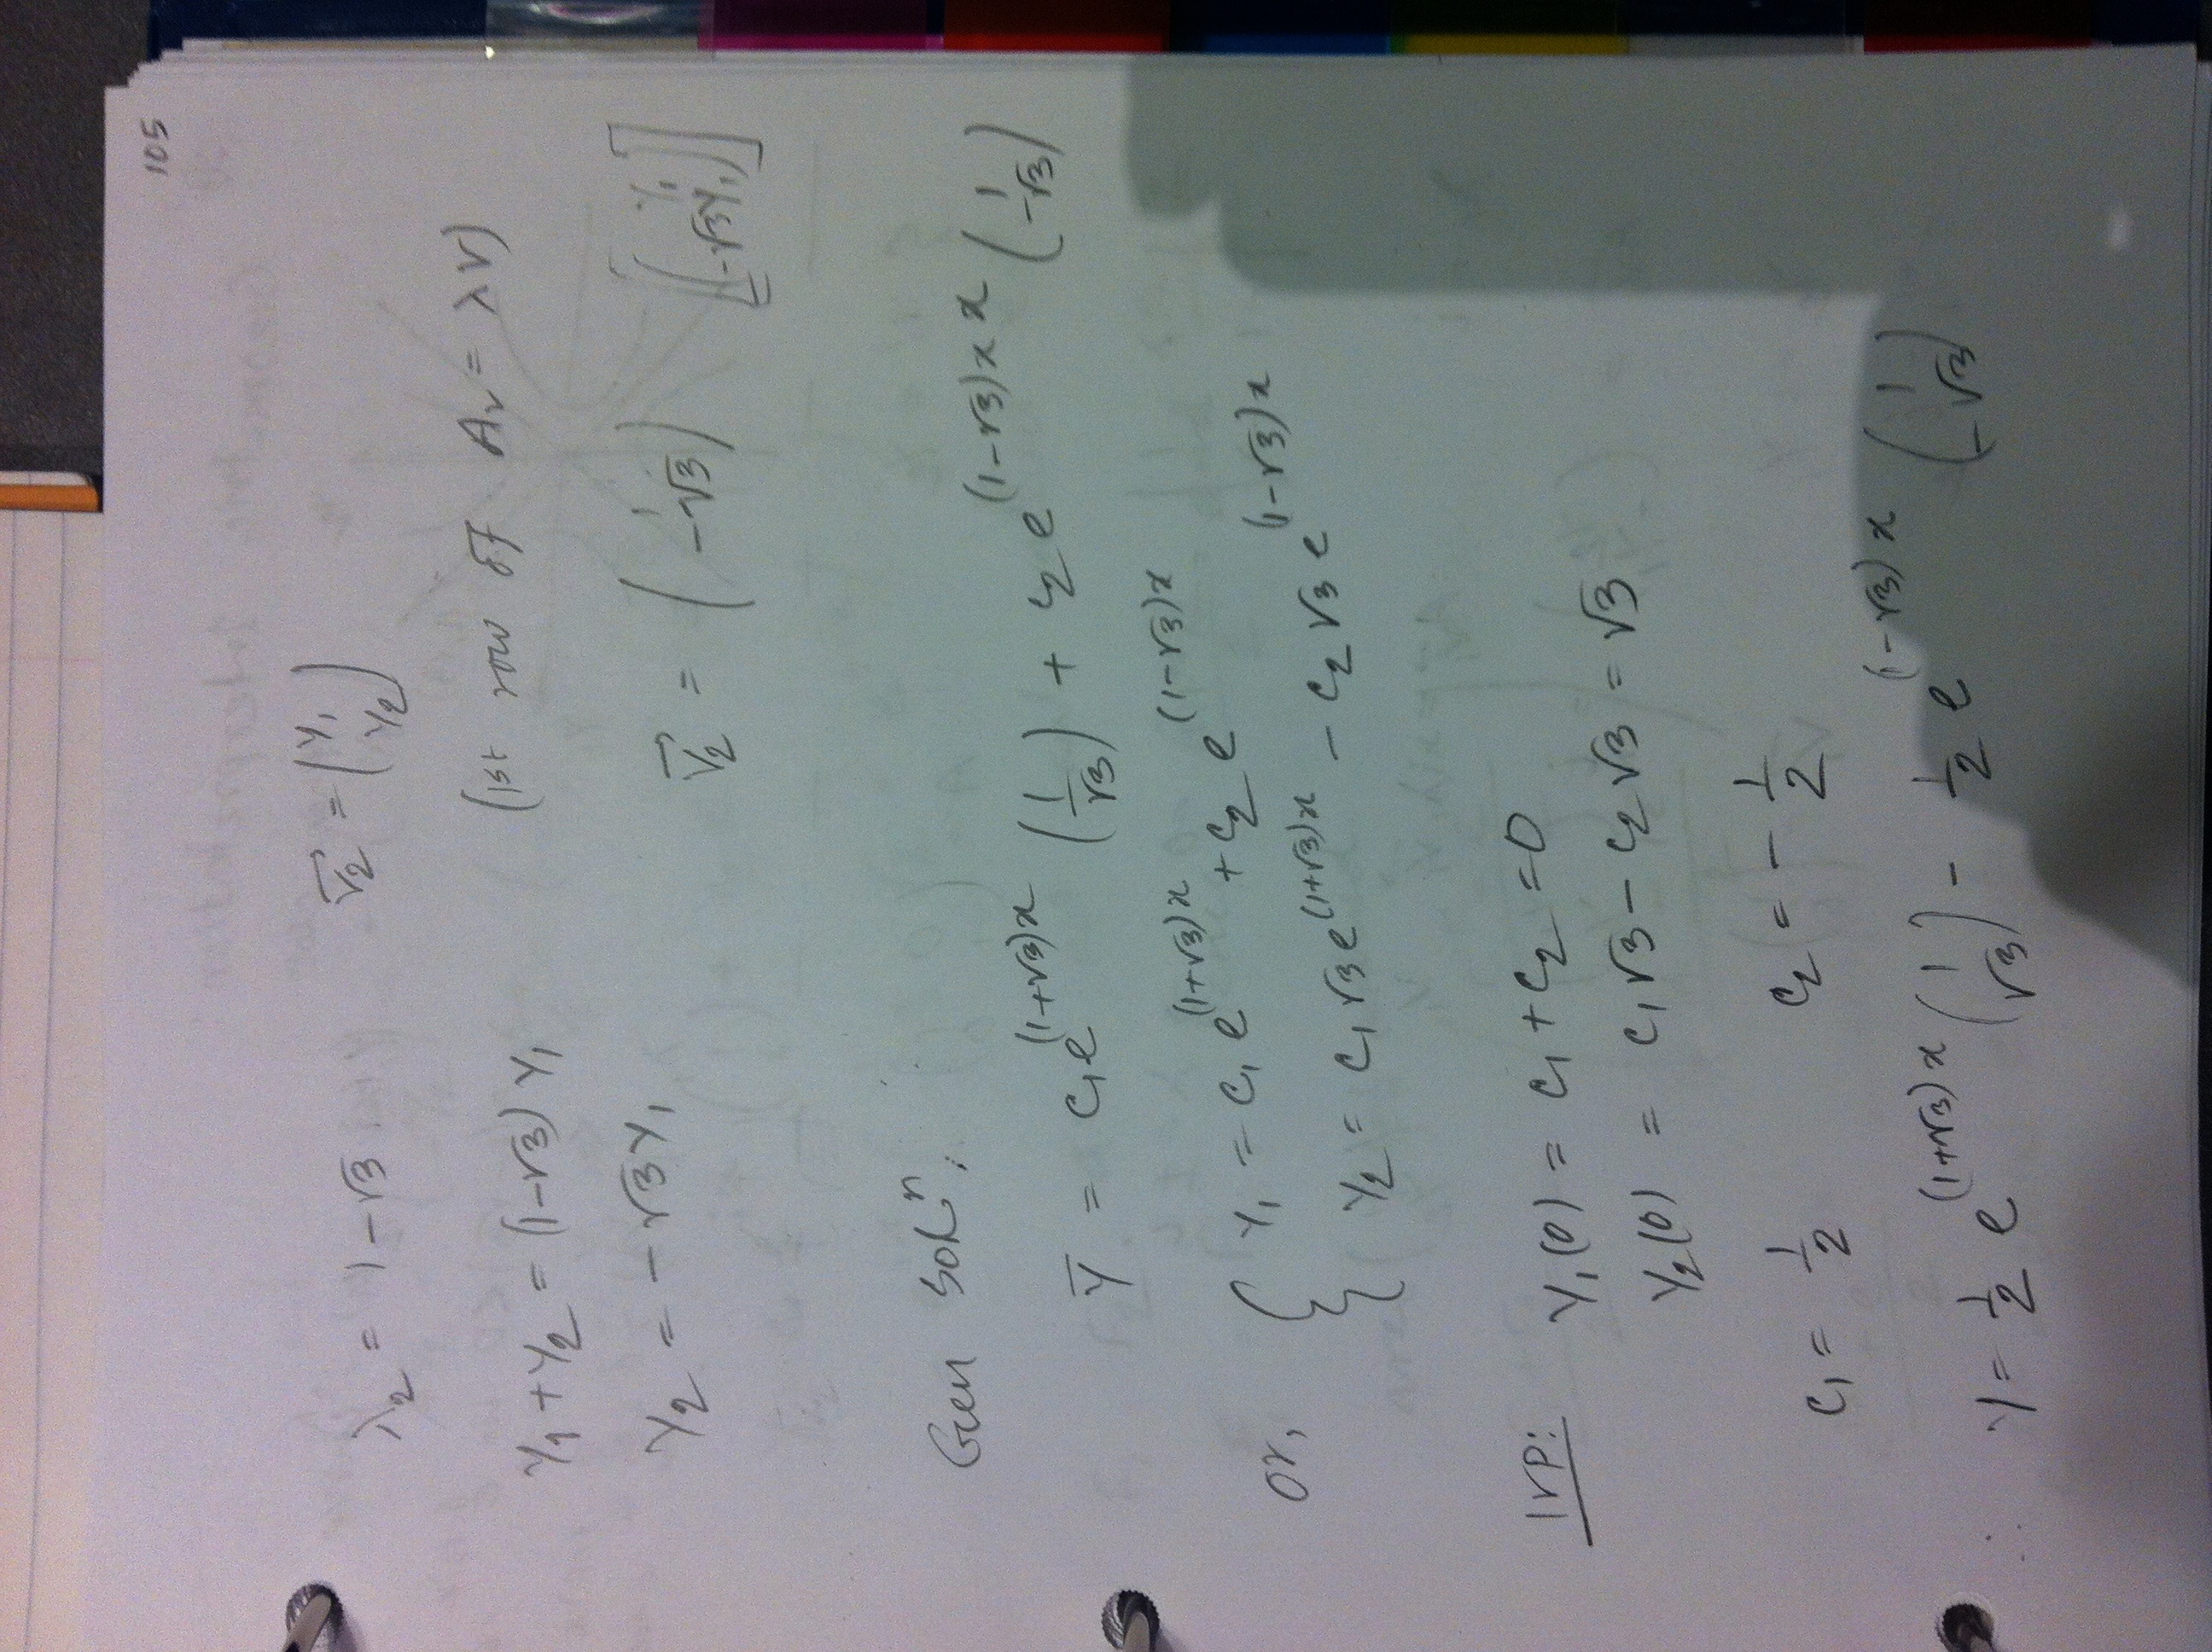 105
λ₂ = 1 - √3    v⃗₂ = (y₁ y₂)
y₁ + y₂ = (1-√3) y₁    (1st row of Av = λv)
y₂ = -√3 y₁    v⃗₂ = (1 -√3)    [(y₁ -√3y₁)]
Gen solⁿ:
y̅ = c₁e^(1+√3)x (1 √3) + c₂e^(1-√3)x x (1 -√3)
or, { y₁ = c₁e^(1+√3)x + c₂e^(1-√3)x
y₂ = c₁√3e^(1+√3)x - c₂√3e^(1-√3)x
IVP: y₁(0) = c₁ + c₂ = 0
y₂(0) = c₁√3 - c₂√3 = √3
c₁ = 1/2    c₂ = -1/2
∴ y = 1/2 e^(1+√3)x (1 √3) - 1/2 e^(1-√3)x (1 -√3)